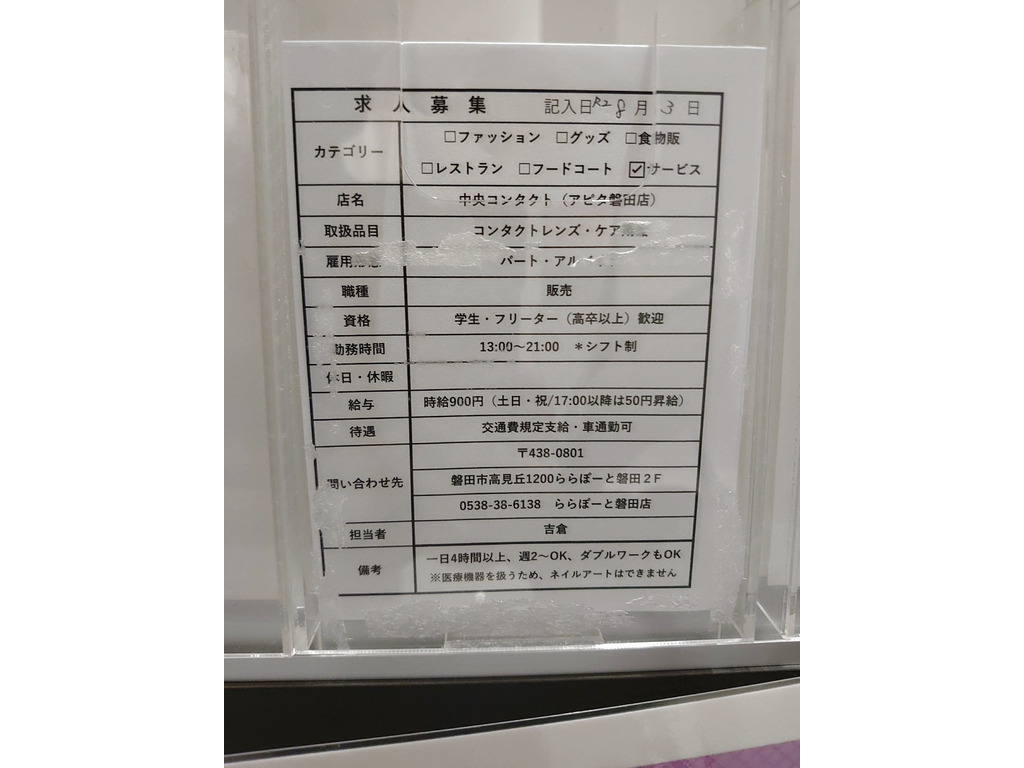 求人募集 記入日R2 8月3日
カテゴリー
□ファッション □グッズ □食物販
□レストラン □フードコート ☑サービス
店名 中央コンタクト（アピタ磐田店）
取扱品目 コンタクトレンズ・ケア
雇用 パート・アル
職種 販売
資格 学生・フリーター（高卒以上）歓迎
勤務時間 13:00～21:00 ＊シフト制
休日・休暇
給与 時給900円（土日・祝/17:00以降は50円昇給）
待遇 交通費規定支給・車通勤可
問い合わせ先
〒438-0801
磐田市高見丘1200ららぽーと磐田２Ｆ
0538-38-6138 ららぽーと磐田店
担当者 吉倉
備考
一日4時間以上、週2～OK、ダブルワークもOK
※医療機器を扱うため、ネイルアートはできません